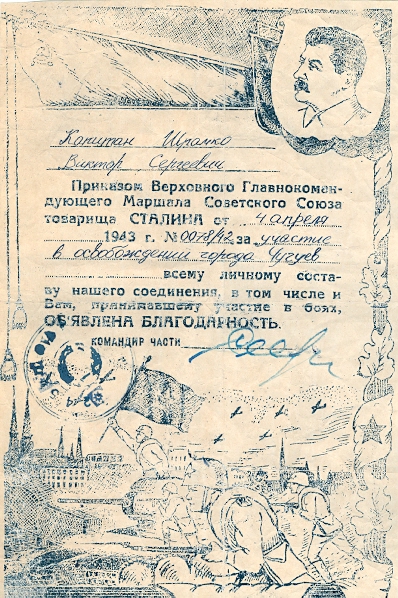 Капитан Шрамко
Виктор Сергеевич
Приказом Верховного Главнокоман-
дующего Маршала Советского Союза
товарища СТАЛИНА от 4 апреля
1943 г. № 0078/42 за участие
в освобождении города Чугуев
всему личному соста-
ву нашего соединения, в том числе и
Вам, принимавшему участие в боях,
ОБ'ЯВЛЕНА БЛАГОДАРНОСТЬ.
КОМАНДИР ЧАСТИ